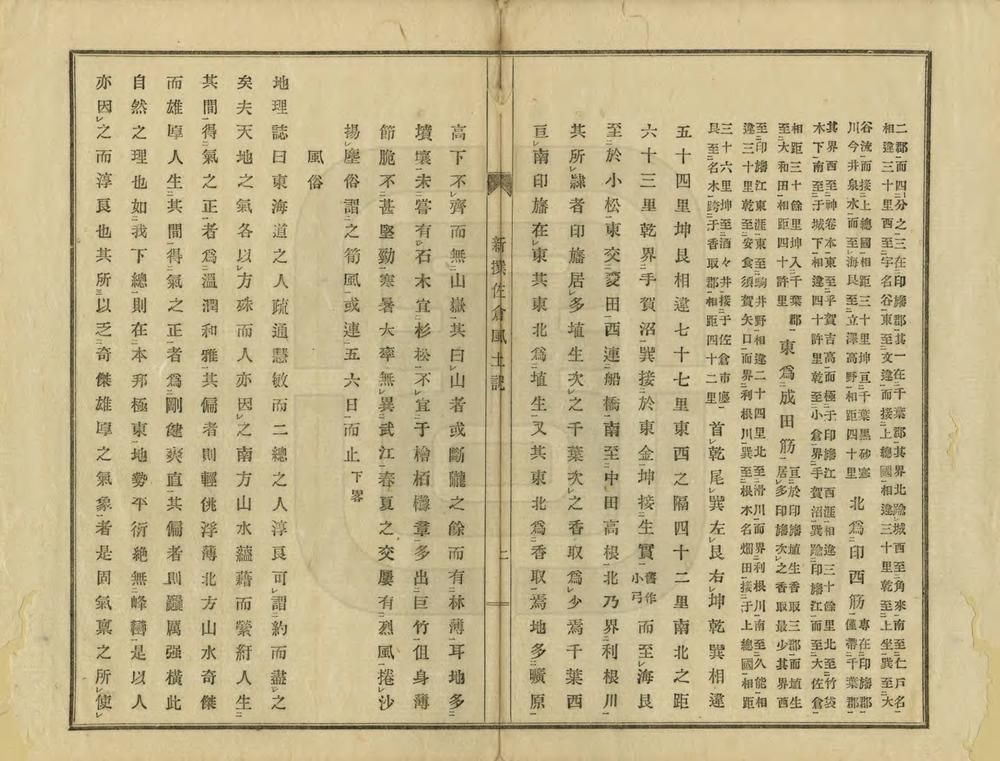 二郡而四分之三在印旛郡其一在千葉郡其界北踰城西至角來南至仁戸名
相違三十里西至字名谷東至文違而接上總國相違三十里乾至上坐巽至大
谷流而接上總國相距三十里坤亘千葉黑砂寒
川今井泉水而至海艮至立澤高野相距四十里
北爲印西筋
專在印旛郡
僅帶千葉郡
其界西至神卷本東至平賀吉高而極于印旛江西涯相違三十餘里北至竹袋
木下南至于城下相違四十許里乾至小倉界手賀沼巽踰印旛江而至大佐倉
相距三十餘里坤入千葉郡
至大和田相距四十許里
東爲成田筋
亘於印旛埴生香取三郡而埴生
居多印旛次之香取最少其界西
至印旛江東涯東至駒井野相違二十四里北至滑川而界利根川南至久能相
違三十里乾至安食須賀矢口而界利根川巽至根木名㷡田接于上總國相距
三十六里坤至酒々井接于佐倉市廛
艮至名木跨于香取郡相距四十二里
首乾尾巽左艮右坤乾巽相違
五十四里坤艮相違七十七里東西之隔四十二里南北之距
六十三里乾界手賀沼巽接於東金坤接生實
舊作
小弓
而至海艮
至於小松東交菱田西連船橋南至中田高根北乃界利根川
其所隷者印旛居多埴生次之千葉次之香取爲少焉千葉西
亘南印旛在東其東北爲埴生又其東北爲香取焉地多曠原
新撰佐倉風土記
二
高下不齊而無山嶽其曰山者或斷隴之餘而有林薄耳地多
墳壤未嘗有石木宜杉松不宜于檜栢櫸章多出巨竹伹身薄
節脆不甚堅勁寒暑大率無異武江春夏之交屢有烈風捲沙
揚塵俗謂之筍風或連五六日而止
下畧
風俗
地理誌曰東海道之人疏通慧敏而二總之人淳良可謂約而盡之
矣夫天地之氣各以方殊而人亦因之南方山水蘊藉而縈紆人生
其間得氣之正者爲溫潤和雅其偏者則輕佻浮薄北方山水奇傑
而雄厚人生其間得氣之正者爲剛健爽直其偏者則麤厲强橫此
自然之理也如我下總則在本邦極東地勢平衍絶無峰巒是以人
亦因之而淳良也其所以乏奇傑雄厚之氣象者是固氣稟之所使